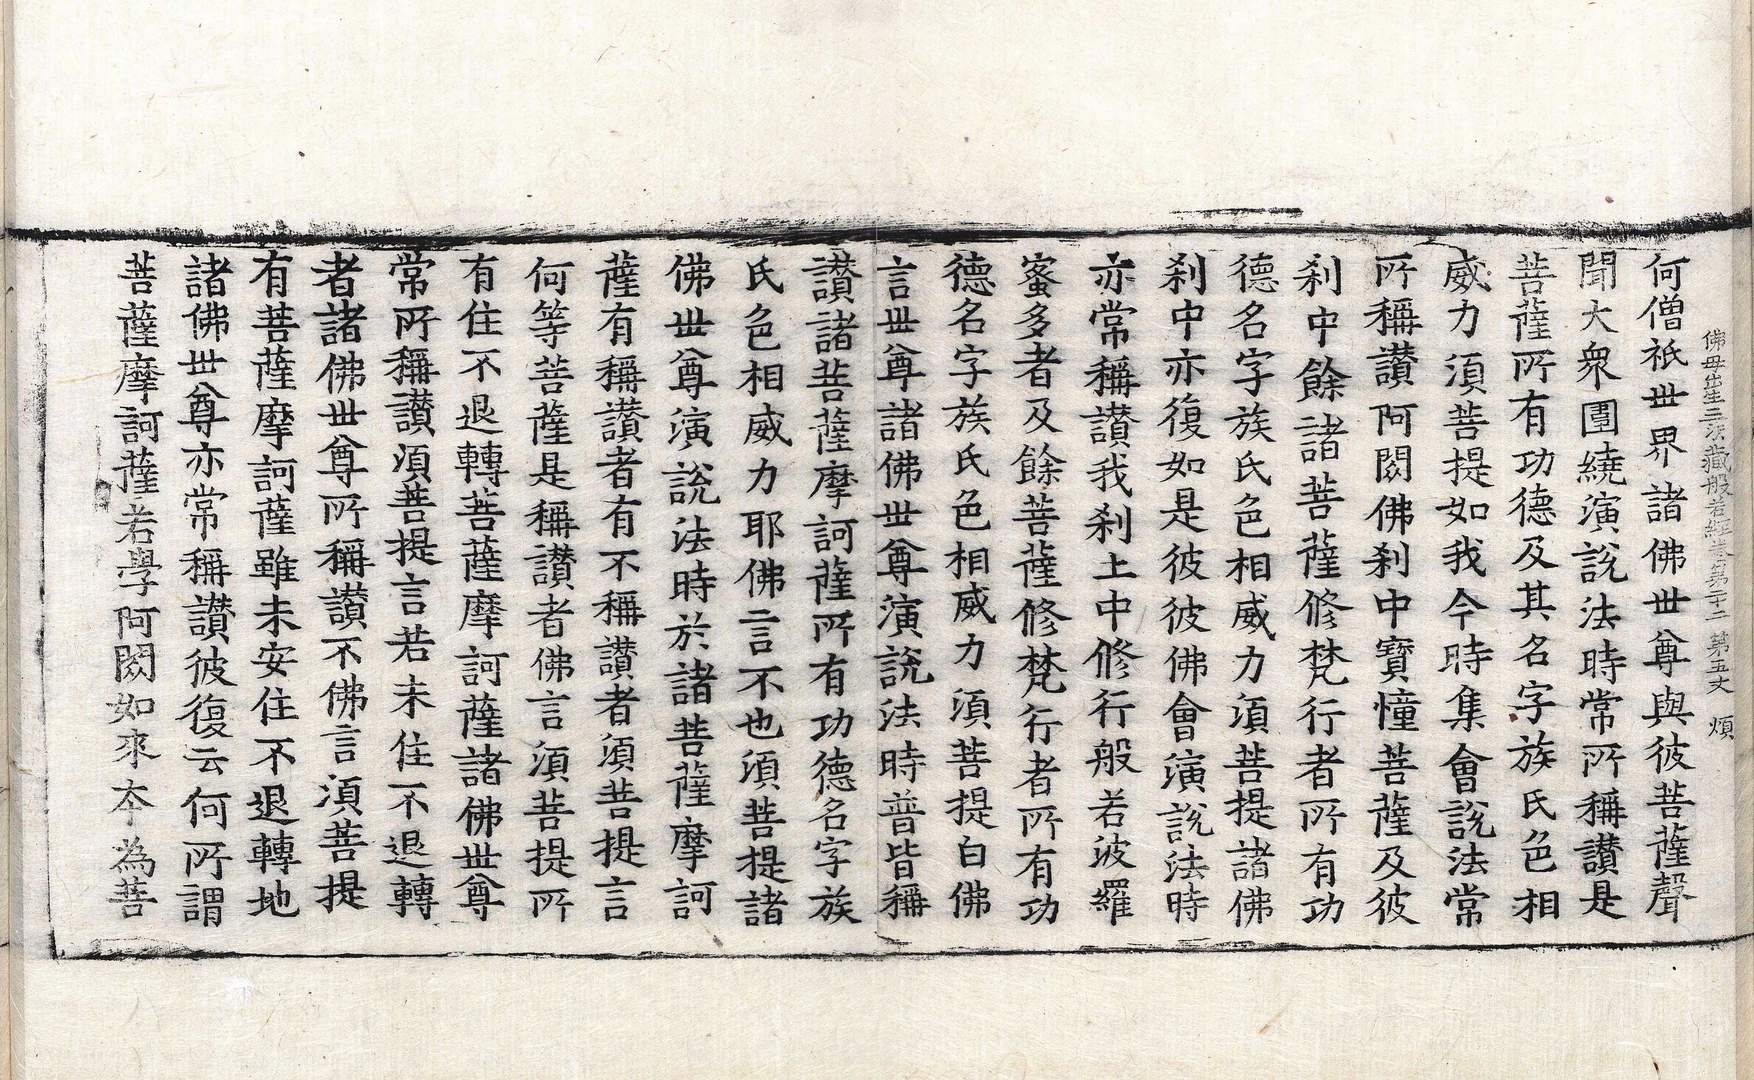 佛母出生三法藏般若經卷第二十二 第五丈 煩
何僧祇世界諸佛世尊與彼菩薩聲
聞大衆圍繞演說法時常所稱讃是
菩薩所有功德及其名字族氏色相
威力須菩提如我今時集會說法常
所稱讃阿閦佛刹中寶憧菩薩及彼
刹中餘諸菩薩修梵行者所有功
德名字族氏色相威力須菩提諸佛
刹中亦復如是彼彼佛會演說法時
亦常稱讃我刹土中修行般若波羅
蜜多者及餘菩薩修梵行者所有功
德名字族氏色相威力須菩提白佛
言世尊諸佛世尊演說法時普皆稱
讃諸菩薩摩訶薩所有功德名字族
氏色相威力耶佛言不也須菩提諸
佛世尊演說法時於諸菩薩摩訶
薩有稱讃者有不稱讃者須菩提言
何等菩薩是稱讃者佛言須菩提所
有住不退轉菩薩摩訶薩諸佛世尊
常所稱讃須菩提言若未住不退轉
者諸佛世尊所稱讃不佛言須菩提
有菩薩摩訶薩雖未安住不退轉地
諸佛世尊亦常稱讃彼復云何所謂
菩薩摩訶薩若學阿閦如來本為菩